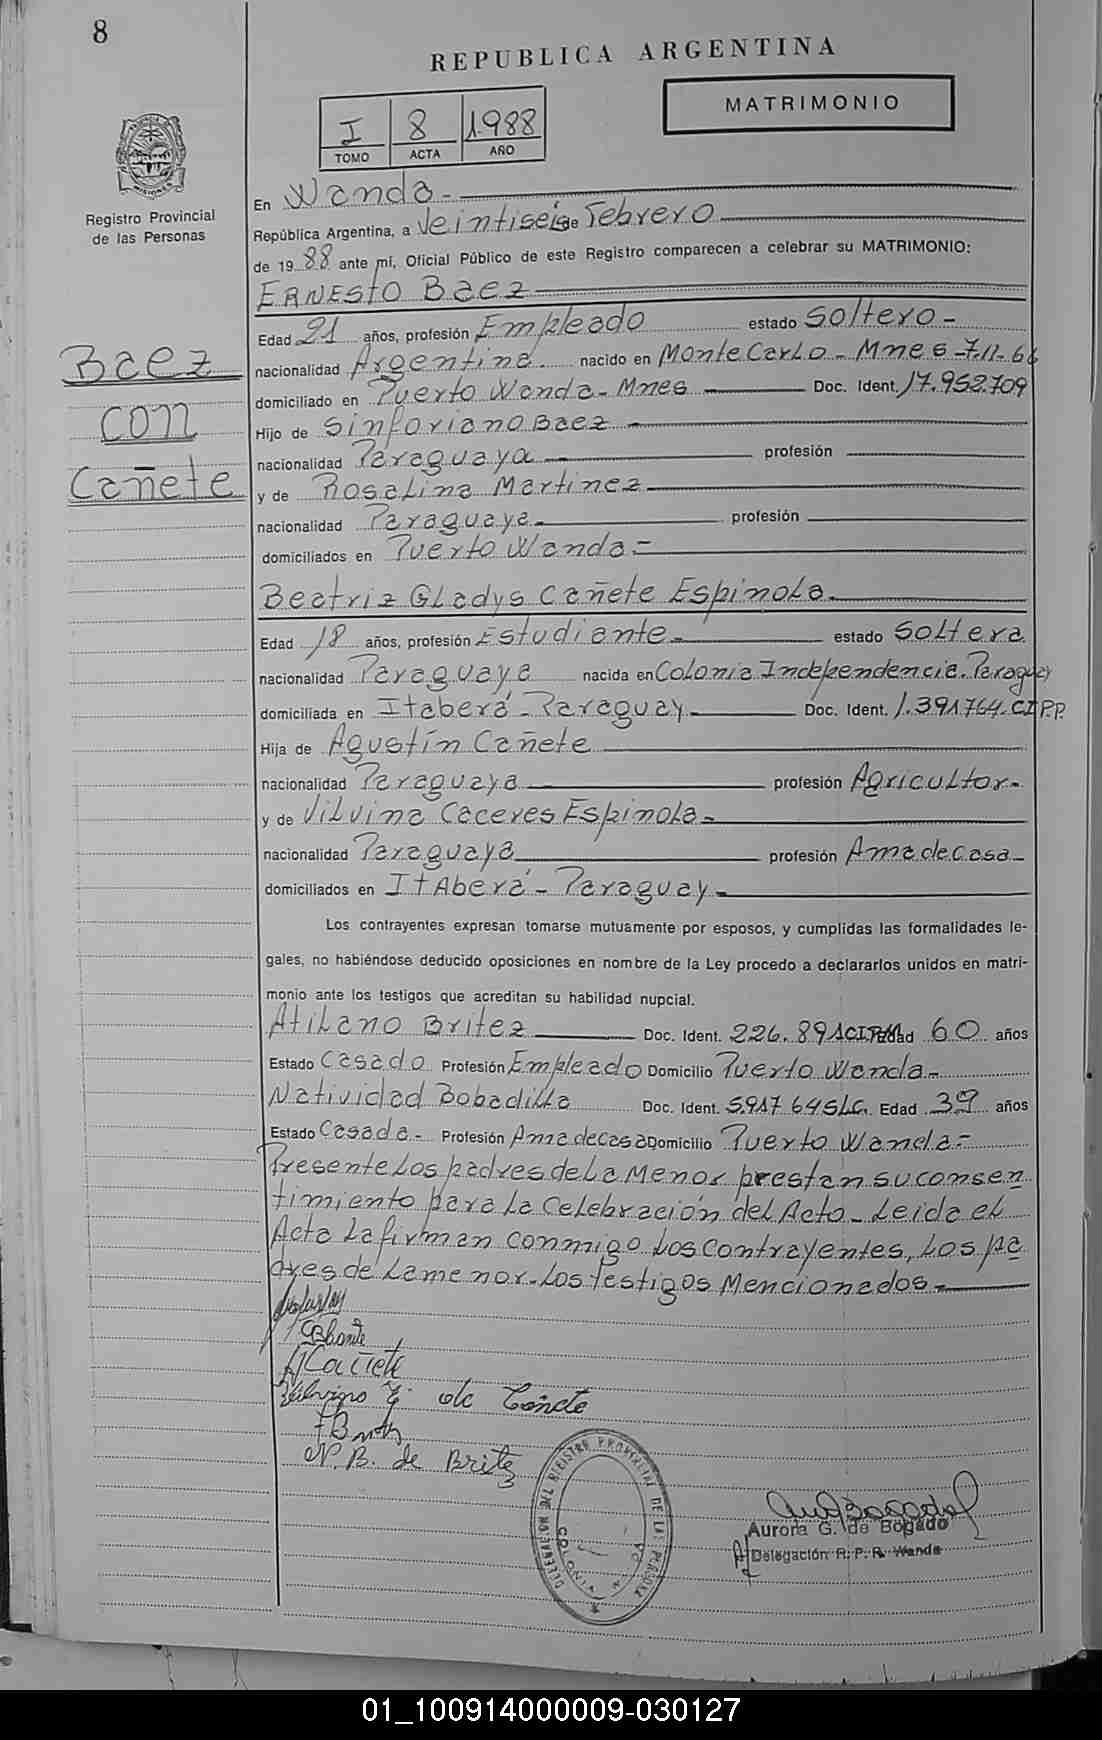 8
REPUBLICA ARGENTINA
MATRIMONIO
I 8 1.988
TOMO ACTA AÑO
Registro Provincial
de las Personas
En Wanda.-
República Argentina, a Veintiseis de Febrero
de 19 88 ante mí, Oficial Público de este Registro comparecen a celebrar su MATRIMONIO:
ERNESTO Baez
Edad 21 años, profesión Empleado estado Soltero-
nacionalidad Argentina. nacido en Monte Carlo- Mnes-7.11.66
domiciliado en Puerto Wanda- Mnes Doc. Ident. 17.952.709
Baez
con
Cañete
Hijo de Sinforiano Baez -
nacionalidad Paraguaya profesión
y de Rosalina Martinez
nacionalidad Paraguaya profesión
domiciliados en Puerto Wanda-
Beatriz Gladys Cañete Espinola.
Edad 18 años, profesión Estudiante- estado Soltera
nacionalidad Paraguaya nacida en Colonia Independencia. Paraguay
domiciliada en Itaberá- Paraguay Doc. Ident. 1.391764.CIP.P.
Hija de Agustín Cañete
nacionalidad Paraguaya profesión Agricultor-
y de Vilvina Caceres Espinola-
nacionalidad Paraguaya profesión Ama de Casa-
domiciliados en ItAberá- Paraguay-
Los contrayentes expresan tomarse mutuamente por esposos, y cumplidas las formalidades le-
gales, no habiéndose deducido oposiciones en nombre de la Ley procedo a declararlos unidos en matri-
monio ante los testigos que acreditan su habilidad nupcial.
Atilano Britez Doc. Ident. 226.891 Edad 60 años
Estado Casado Profesión Empleado Domicilio Puerto Wanda-
Natividad Bobadilla Doc. Ident. 5.917645LC. Edad 39 años
Estado Casada- Profesión Ama de casa Domicilio Puerto Wanda-
Presente Los padres de La Menor prestan su consen
timiento para La Celebración del Acto- Leida el
Acta La firman conmigo Los Contrayentes, Los pa
dres de La menor- Los Testigos Mencionados-
ACañete
de Cañete
N. B. de Britez
DELEGACION DEL REGISTRO PROVINCIAL DE LAS PERSONAS
COLONIA
Aurora G. de Bogado
Delegación R. P. R. Wanda
01_100914000009-030127